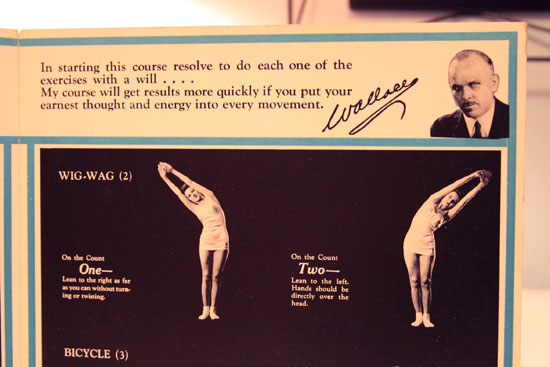 In starting this course resolve to do each one of the
exercises with a will . . . .
My course will get results more quickly if you put your
earnest thought and energy into every movement.
Wallace
WIG-WAG (2)
On the Count
One—
Lean to the right as far
as you can without turn-
ing or twisting.
On the Count
Two—
Lean to the left.
Hands should be
directly over the
head.
BICYCLE (3)